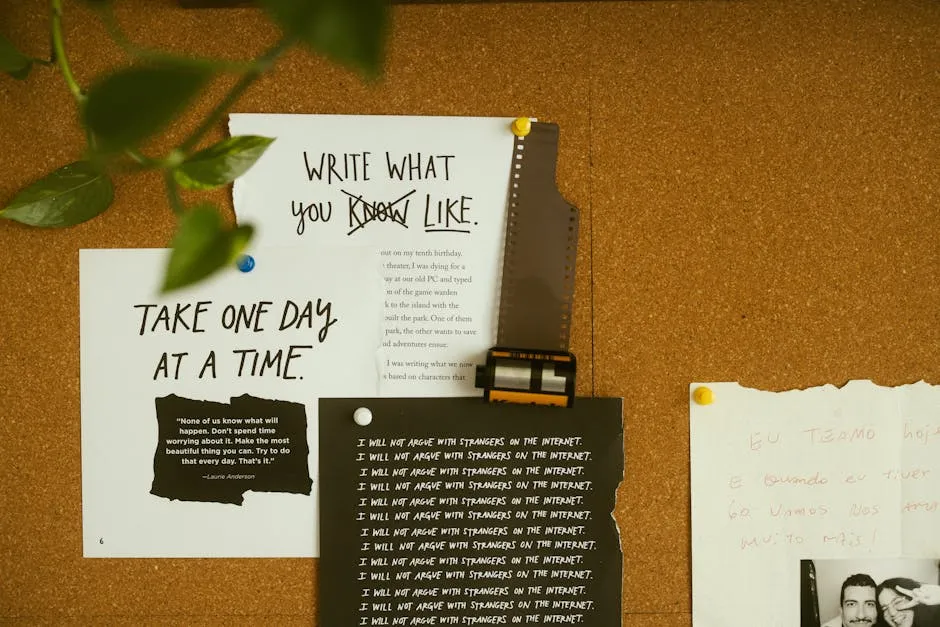 WRITE WHAT
YOU KNOW LIKE.
out on my tenth birthday.
theater, I was dying for a
ay at our old PC and typed
on of the game warden
k to the island with the
built the park. One of them
park, the other wants to save
nd adventures ensue.
I was writing what we now
s based on characters that
TAKE ONE DAY
AT A TIME.
"None of us know what will
happen. Don't spend time
worrying about it. Make the
most beautiful thing you can. Try to do
that every day. That's it."
—Laurie Anderson
6
I WILL NOT ARGUE WITH STRANGERS ON THE INTERNET.
I WILL NOT ARGUE WITH STRANGERS ON THE INTERNET.
I WILL NOT ARGUE WITH STRANGERS ON THE INTERNET.
I WILL NOT ARGUE WITH STRANGERS ON THE INTERNET.
I WILL NOT ARGUE WITH STRANGERS ON THE INTERNET.
I WILL NOT ARGUE WITH STRANGERS ON THE INTERNET.
I WILL NOT ARGUE WITH STRANGERS ON THE INTERNET.
I WILL NOT ARGUE WITH STRANGERS ON THE INTERNET.
I WILL NOT ARGUE WITH STRANGERS ON THE INTERNET.
I WILL NOT ARGUE WITH STRANGERS ON THE INTERNET.
I WILL NOT ARGUE WITH STRANGERS ON THE INTERNET.
I WILL NOT ARGUE WITH STRANGERS ON THE INTERNET.
I WILL NOT ARGUE WITH STRANGERS ON THE INTERNET.
EU TE AMO hoje
E Quando eu tiver
60 Vamos Nos
MUITO MAIS!